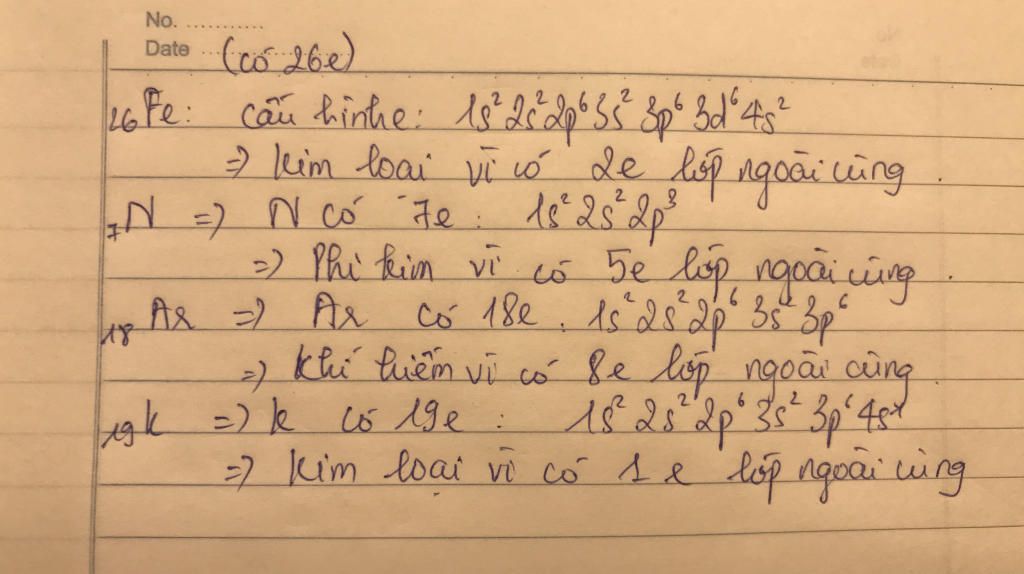 No. ............
Date ............ (có 26e)
₂₆Fe: cấu hình e: 1s² 2s² 2p⁶ 3s² 3p⁶ 3d⁶ 4s²
=> kim loại vì có 2e lớp ngoài cùng.
₇N => N có 7e: 1s² 2s² 2p³
=> Phi kim vì có 5e lớp ngoài cùng.
₁₈Ar => Ar có 18e: 1s² 2s² 2p⁶ 3s² 3p⁶
=> Khí hiếm vì có 8e lớp ngoài cùng.
₁₉K => K có 19e: 1s² 2s² 2p⁶ 3s² 3p⁶ 4s¹
=> Kim loại vì có 1e lớp ngoài cùng